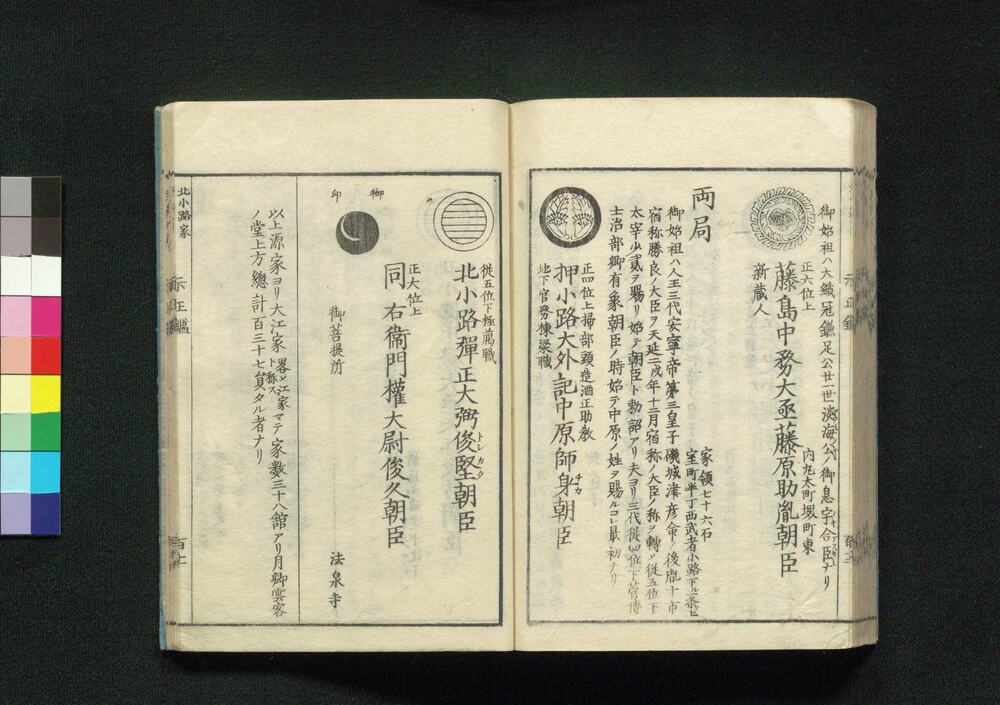 御始祖ハ大織冠鎌足公廿一世
御息宇合臣ナリ
正六位上
内丸太町堺町東
藤島中務大丞藤原助胤朝臣
新蔵人
両局
家領七十六石
室町半丁西武者小路下ル一条上
御始祖ハ人王三代安寧帝第三皇子磯城津彦命ノ後胤十市
宿称勝良ノ大臣ヲ天延二戌年十二月宿称ノ大臣ノ称ヲ轉シ従五位下
太宰少貳ヲ賜リ始テ朝臣ト勅詔アリ夫ヨリ三代従四位下菅博
士治部卿有象朝臣ノ時始テ中原ノ姓ヲ賜ルコレ最初ナリ
正四位上掃部頭造酒正助教
押小路大外記中原師身朝臣
チカ
地下官務棟梁職
従五位下極﨟職
北小路彈正大弼俊堅朝臣
トシカタ
正六位上
同右衞門權大尉俊久朝臣
御印
御菩提所 法泉寺
以上源家ヨリ大江家畧シ江家ト称スマテ家数三十八館アリ月卿雲客
ノ堂上方總計百三十七負タル者ナリ
北小路家